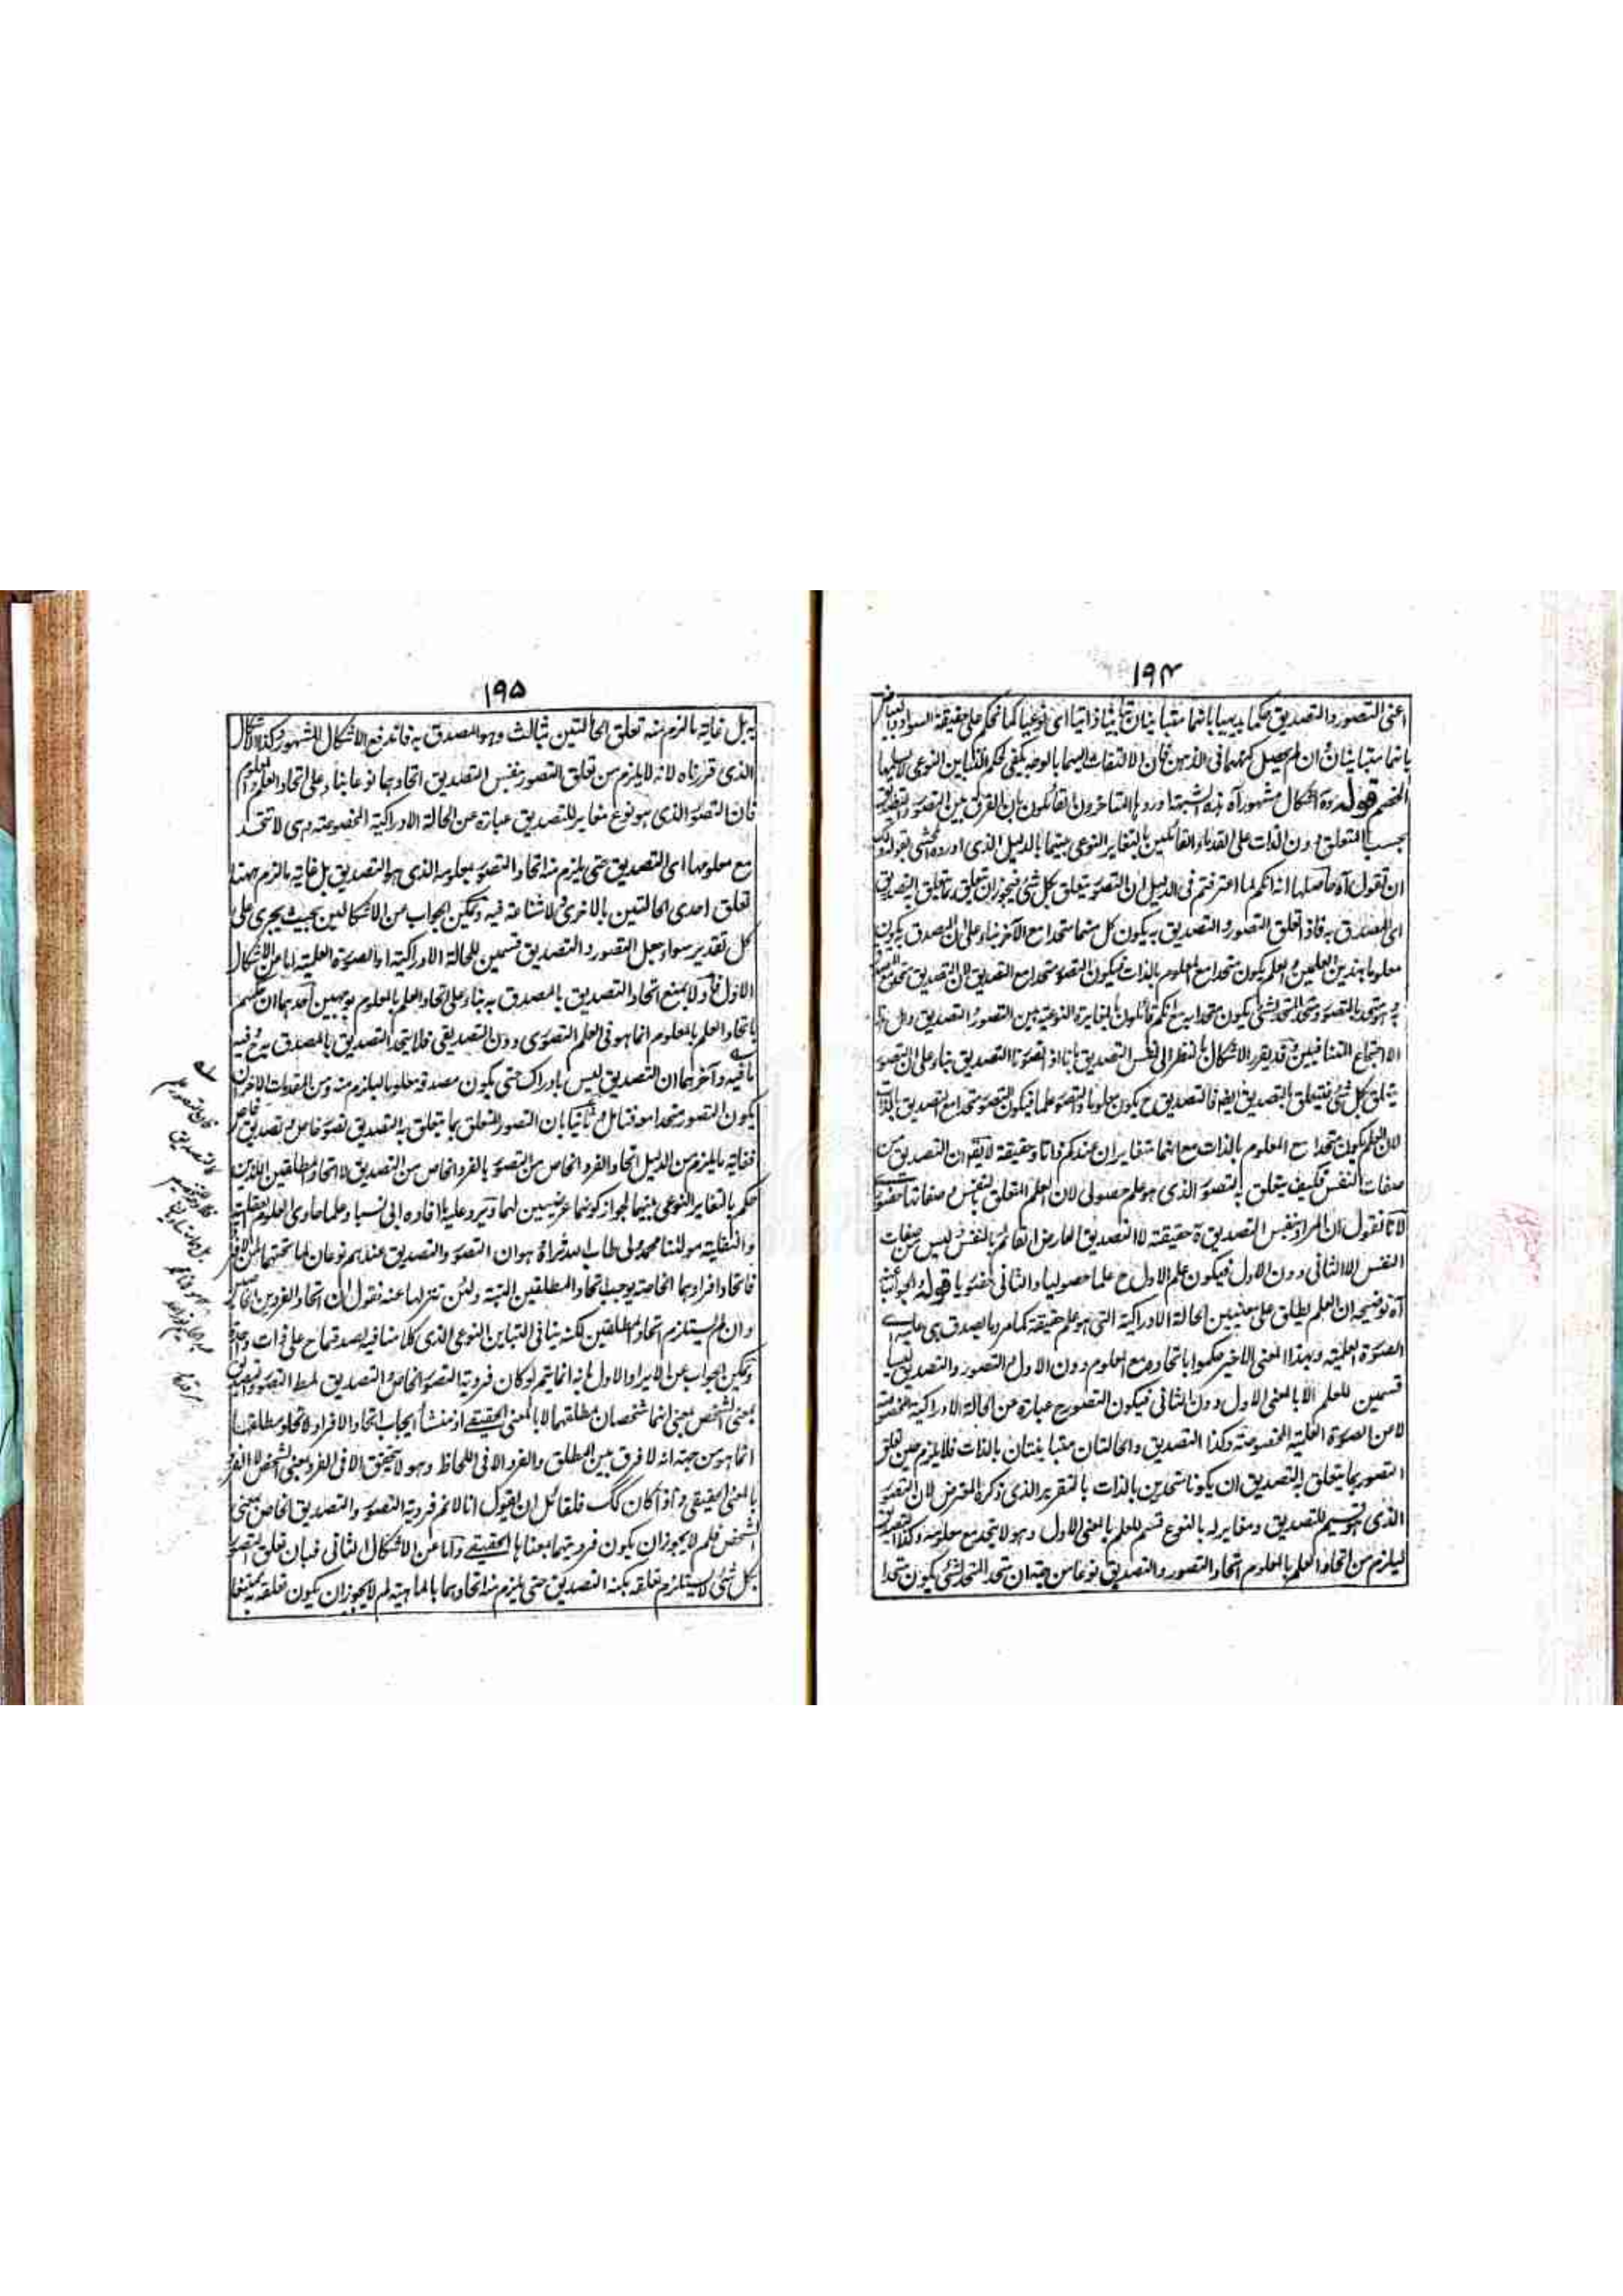 ١٩٤
اعنى التصور والتصديق حكما بديهيا بانهما متباينان تباينا ذاتيا اى نوعيا كما نحكم على حقيقة السواد والبياض
بانهما متباينان وان لم يحصل كنههما فى الذهن فان الالتفات اليهما بالوجه يكفى لحكم التباين النوعى
الخصم قوله اشكال مشهور آه هذه الشبهة اوردها المتاخرون القائلون بان الفرق بين التصور والتصديق
بحسب المتعلق دون الذات على القدماء القائلين بالتغاير النوعى بينهما بالدليل الذى اورده المحشى بقوله
ان تقول آه حاصلها انه انكم لما اعترفتم فى الدليل ان التصور يتعلق بكل شئ فيجوز ان يتعلق بما يتعلق به التصديق
اى المصدق به فاذا تعلق التصور والتصديق به يكون كل منهما متحدا مع الآخر بناء على ان المصدق به يكون
معلوما بهذين العلمين والعلم يكون متحدا مع المعلوم بالذات فيكون التصور متحدا مع التصديق لان التصديق متحد مع
به هو متحد بالتصور ومتحد المتحد لشئ يكون متحدا به مع انكم قائلون بالمغايرة النوعية بين التصور والتصديق وهل هذا
الا اجتماع المتنافيين وقد يقرر الاشكال بالنظر الى نفس التصديق بانا اذا تصورنا التصديق بناء على ان التصور
يتعلق بكل شئ فيتعلق بالتصديق ايضا فالتصديق ح يكون معلوما والتصور علما فيكون التصور متحدا مع التصديق بالذات
لان العلم يكون متحدا مع المعلوم بالذات مع انهما متغايران عندكم ذاتا وحقيقة لا يقال ان التصديق من
صفات النفس فكيف يتعلق به التصور الذى هو علم حصولى لان العلم المتعلق بالنفس وصفاتها حضورى
لانا نقول ان المراد بنفس التصديق حقيقته لا التصديق العارض القائم بالنفس وليس من صفات
النفس الا الثانى دون الاول فيكون علم الاول ح علما حصوليا والثانى حضوريا قوله والجواب عنه
آه توضيحه ان العلم يطلق على معنيين الحالة الادراكية التى هو علم حقيقة كما مر وما يصدق هى عليه اى
الصورة العلمية وبهذا المعنى الاخير حكموا باتحاده مع المعلوم دون الاول والتصور والتصديق ليسا
قسمين للعلم الا بالمعنى الاول دون الثانى فيكون التصور ح عبارة عن الحالة الادراكية المخصوصة
لا من الصورة العلمية المخصوصة وكذا التصديق والحالتان متباينتان بالذات فلا يلزم من تعلق
التصور بما يتعلق به التصديق ان يكونا متحدين بالذات بالتقرير الذى ذكره المعترض لان التصور
الذى هو قسيم للتصديق ومغاير له بالنوع قسم للعلم بالمعنى الاول وهو لا يتحد مع معلومه وكذا التصديق
ليلزم من اتحاد العلم بالمعلوم اتحاد التصور والتصديق نوعا من جهة ان متحد المتحد لشئ يكون متحدا
١٩٥
به بل غاية ما لزم منه تعلق الحالتين بثالث وهو المصدق به فاندفع الاشكال المشهور وكذا الاشكال
الذى قررناه لانه لا يلزم من تعلق التصور بنفس التصديق اتحادهما نوعا بناء على اتحاد العلم والمعلوم
فان التصور الذى هو نوع مغاير للتصديق عبارة عن الحالة الادراكية المخصوصة وهى لا تتحد
مع معلومها اى التصديق حتى يلزم منه اتحاد التصور بمعلومه الذى هو التصديق بل غاية ما لزم ههنا
تعلق احدى الحالتين بالاخرى ولا شناعة فيه ويمكن الجواب عن الاشكالين بحيث يجرى على
كل تقدير سواء جعل التصور والتصديق قسمين للحالة الادراكية او الصورة العلمية اما عن الاشكال
الاول فاولا بمنع اتحاد التصديق بالمصدق به بناء على اتحاد العلم بالمعلوم بوجهين احدهما ان حكمهم
باتحاد العلم بالمعلوم انما هو فى العلم التصورى دون التصديقى فلا يتحد التصديق بالمصدق به وفيه
ما فيه وآخرهما ان التصديق ليس بادراك حتى يكون مصدقه معلوما ليلزم منه ومن المقدمات الاخر ان
يكون التصور متحدا معه فتامل وثانيا بان التصور المتعلق بما يتعلق به التصديق تصور خاص وتصديق خاص
فغاية ما يلزم من الدليل اتحاد الفرد الخاص من التصور بالفرد الخاص من التصديق لا اتحاد المطلقين اللذين
حكم بالتغاير النوعى بينهما لجواز كونهما عرضيين لهما ويرد عليه ما افاده ابى نسبا وعلما حاوى العلوم العقلية
والنقلية مولنا محمد ولى طاب الله ثراه هو ان التصور والتصديق عندهم نوعان لما تحتهما من الافراد
فاتحاد افرادهما الخاصة يوجب اتحاد المطلقين البتة ولئن تنزلنا عنه نقول ان اتحاد الفردين الخاصين
وان لم يستلزم اتحاد المطلقين لكنه ينافى التباين النوعى الذى كلامنا فيه لصدقهما ح على ذات واحدة
ويمكن الجواب عن الايراد الاول بانه انما يتم لو كان فردية التصور الخاص والتصديق لمطلق التصور والتصديق
بمعنى الشخص بمعنى انهما شخصان مطلقهما لا بالمعنى الحقيقى اذ منشأ ايجاب اتحاد الافراد لاتحاد مطلقها
انما هو من جهة انه لا فرق بين المطلق والفرد الا فى اللحاظ وهو لا يتحقق الا فى الفرد بمعنى الشخص لا الفرد
بالمعنى الحقيقى واذا كان كك فلقائل ان يقول انا لا نم فردية التصور والتصديق الخاص بمعنى
الشخص فلم لا يجوز ان يكون فرديتهما بمعناها الحقيقى واما عن الاشكال الثانى فبان تعلق التصور
بكل شئ لا يستلزم تعلقه بكنه التصديق حتى يلزم منه اتحادهما بالماهية لم لا يجوز ان يكون تعلقه به